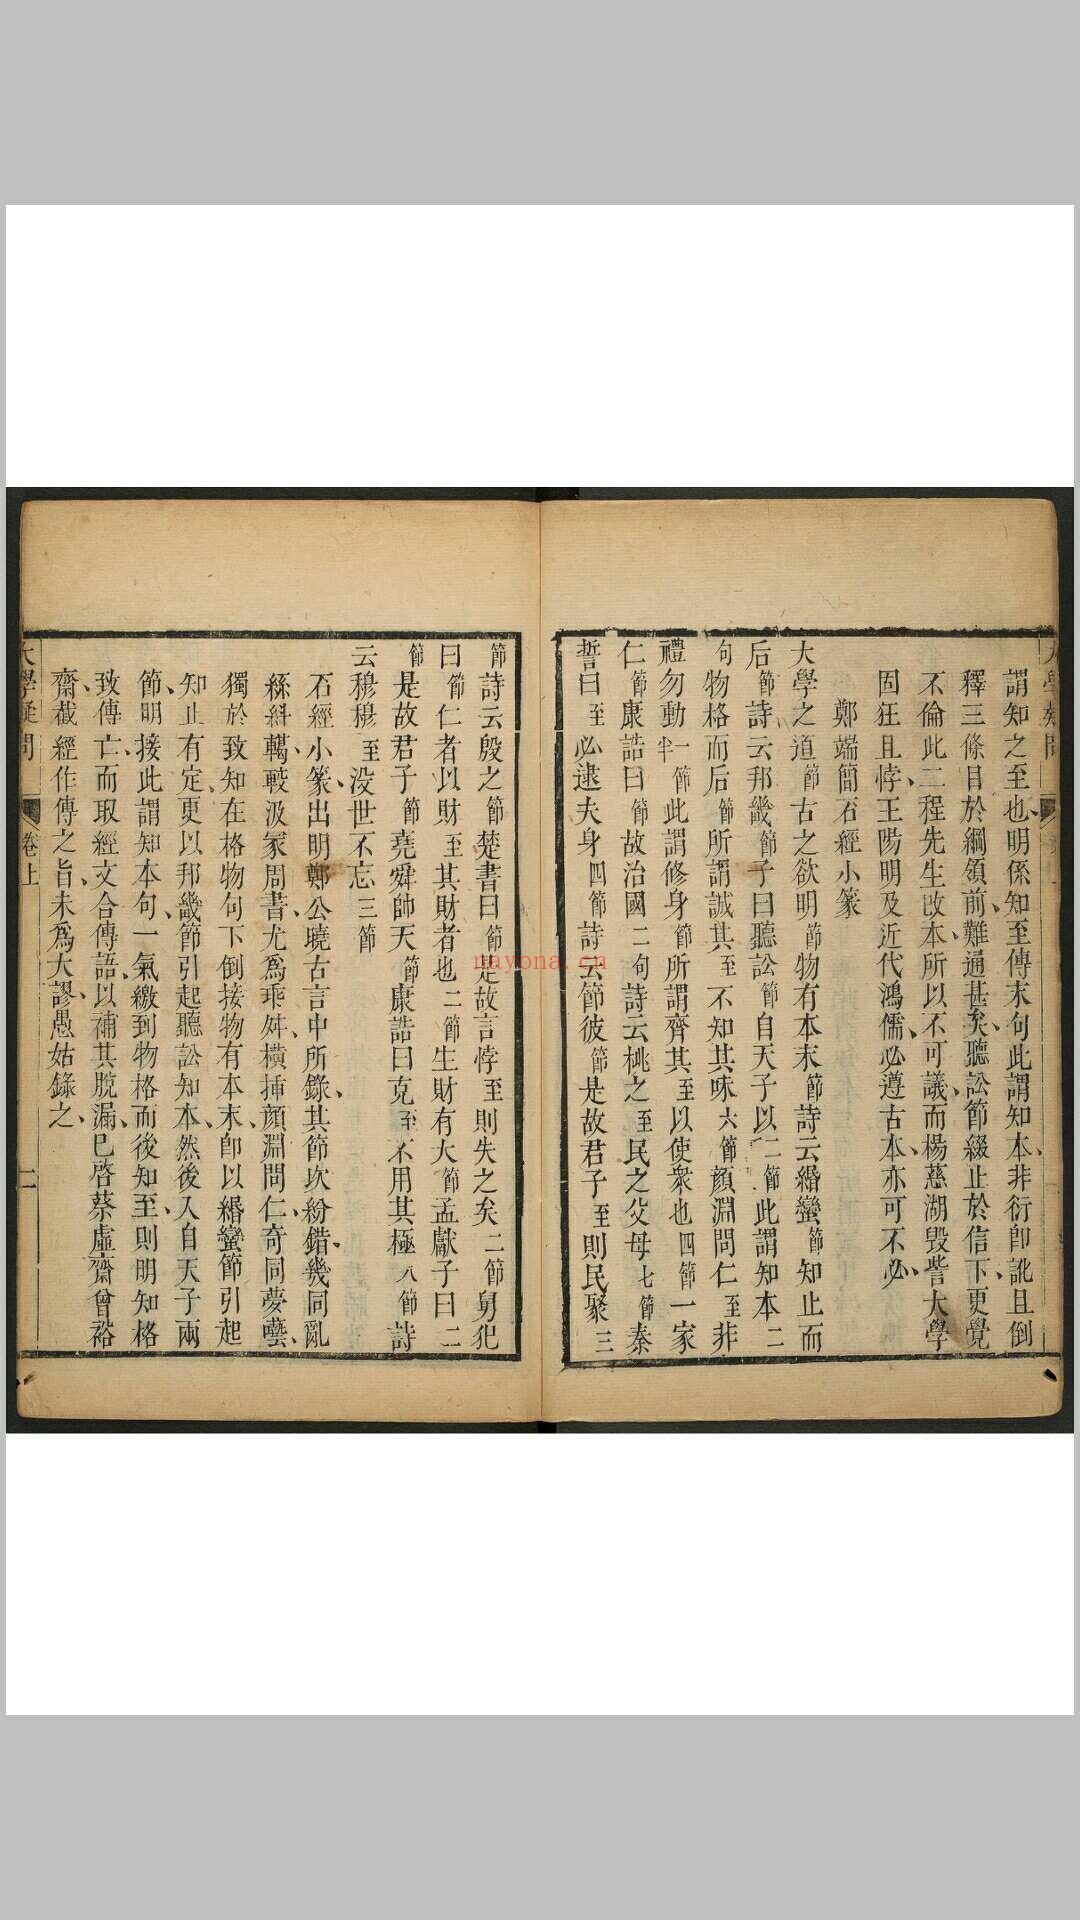 謂知之至也明係知至傳末句此謂知本非衍卽訛且倒
釋三條目於綱領前難通甚矣聽訟節綴止於信下更覺
不倫此二程先生改本所以不可議而楊慈湖毀訾大學
固狂且悖王陽明及近代鴻儒必遵古本亦可不必
鄭端簡石經小篆
大學之道節古之欲明節物有本末節詩云緡蠻節知止而
后節詩云邦畿節子曰聽訟節自天子以二節此謂知本二
句物格而后節所謂誠其至不知其味六節顏淵問仁至非
禮勿動一節半此謂修身節所謂齊其至以使衆也四節一家
仁節康誥曰節故治國二句詩云桃之至民之父母七節秦
誓曰至必逮夫身四節詩云節彼節是故君子至則民聚三
節詩云殷之節楚書曰節是故言悖至則失之矣二節舅犯
曰節仁者以財至其財者也二節生財有大節孟獻子曰二
節是故君子節堯舜帥天節康誥曰克至不用其極八節詩
云穆穆至没世不忘三節
石經小篆出明鄭公曉古言中所錄其節次紛錯幾同亂
絲糾轕較汲冢周書尤爲乖舛橫揷顏淵問仁奇同夢囈
獨於致知在格物句下倒接物有本末卽以緡蠻節引起
知止有定更以邦畿節引起聽訟知本然後入自天子兩
節明接此謂知本句一氣繳到物格而後知至則明知格
致傳亡而取經文合傳語以補其脫漏巳啓蔡虛齋曾裕
齋截經作傳之旨未爲大謬愚姑錄之
大學疑問 卷上 二
nayona.cn